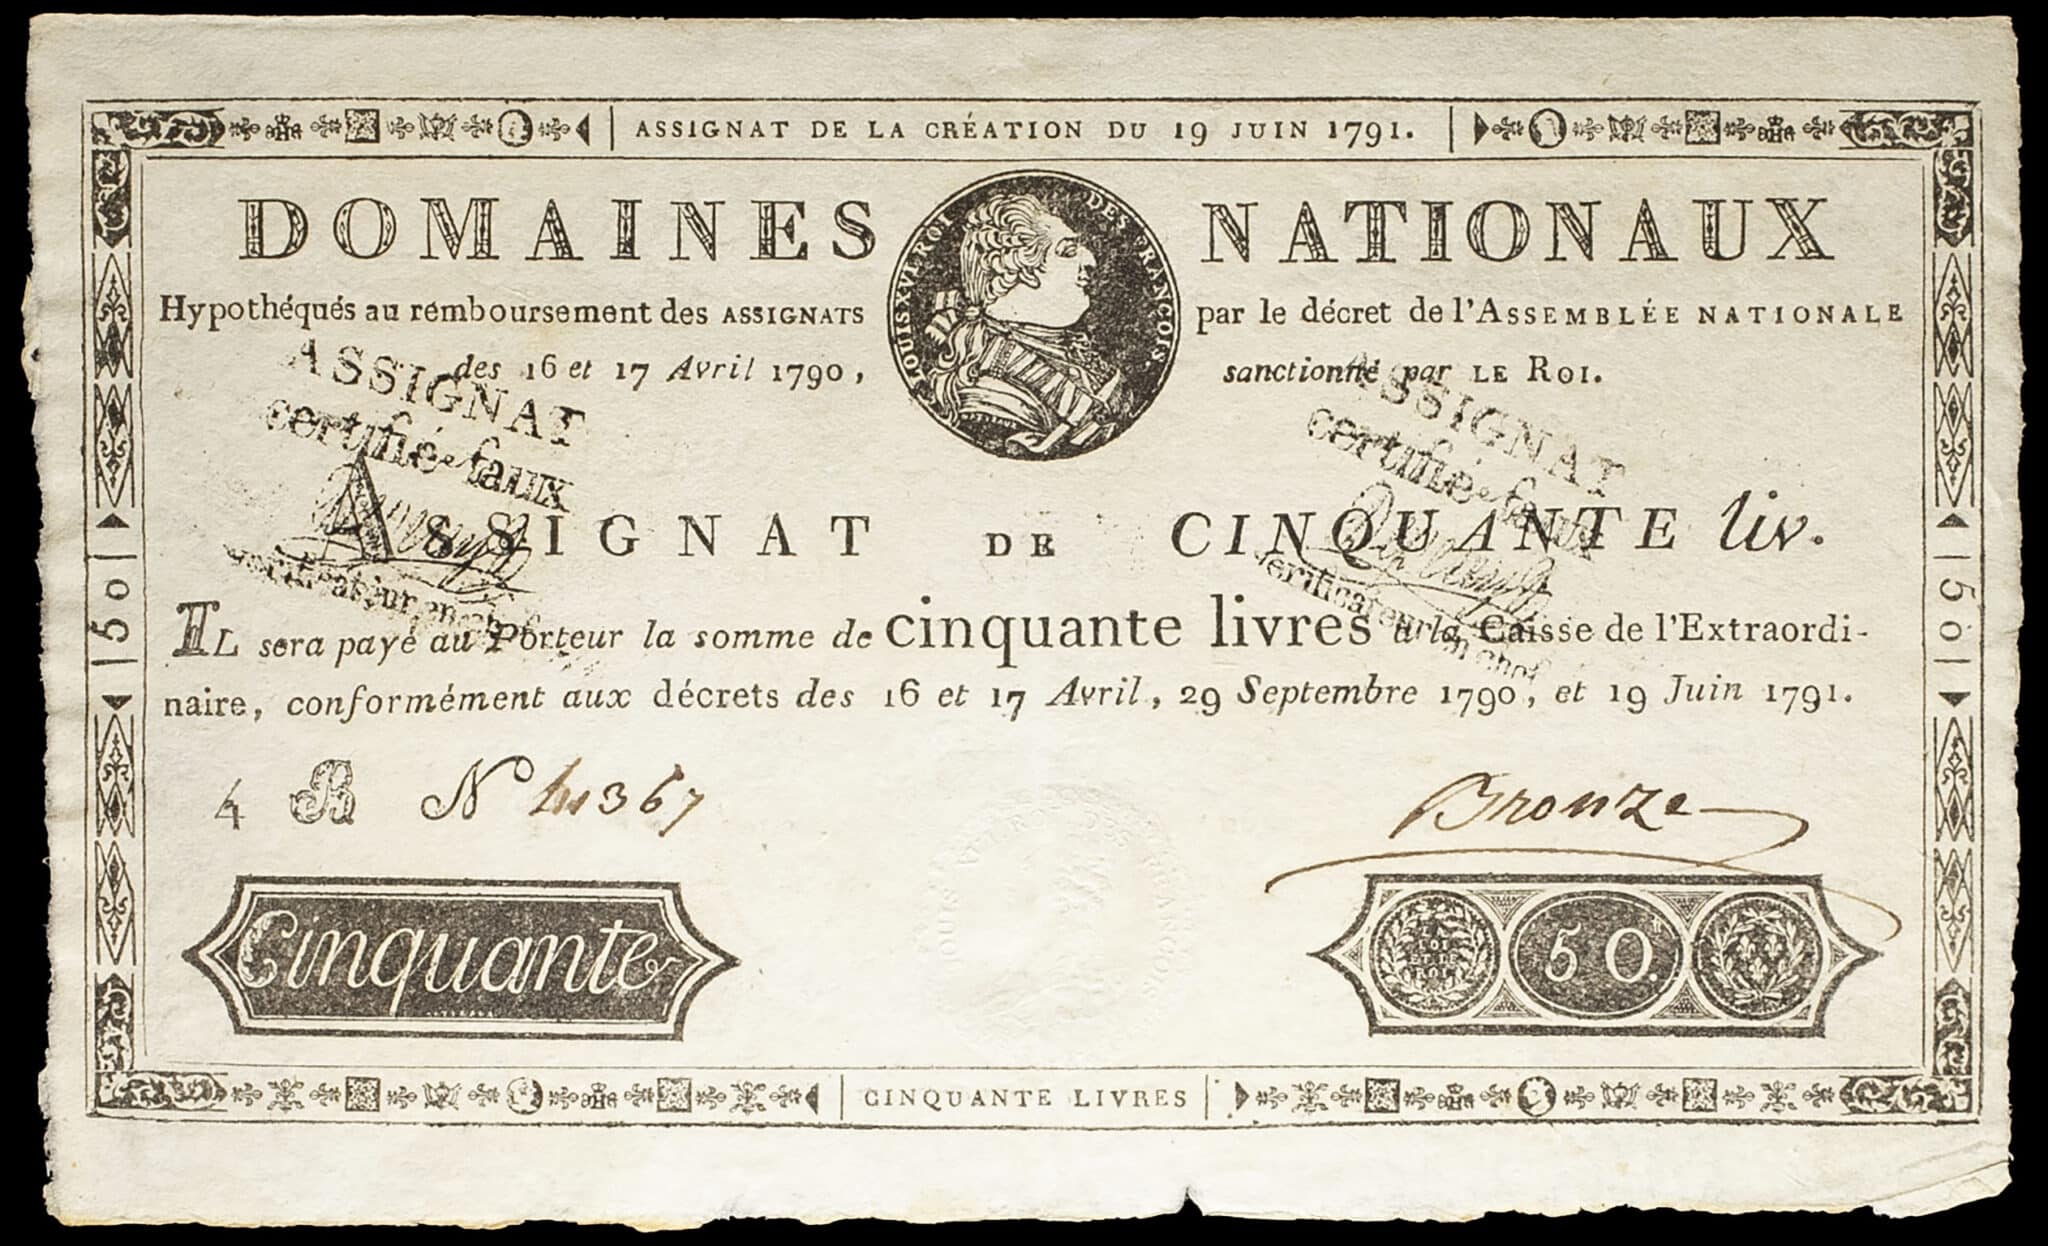 ASSIGNAT DE LA CRÉATION DU 19 JUIN 1791.
DOMAINES NATIONAUX
LOUIS XVI ROI DES FRANÇOIS.
Hypothéqués au remboursement des ASSIGNATS par le décret de l'ASSEMBLÉE NATIONALE
des 16 et 17 Avril 1790, sanctionné par LE ROI.
ASSIGNAT
certifié faux
Vérificateur en chef
ASSIGNAT
certifié faux
Vérificateur en chef
ASSIGNAT DE CINQUANTE liv.
IL sera payé au Porteur la somme de cinquante livres à la Caisse de l'Extraordi-
naire, conformément aux décrets des 16 et 17 Avril, 29 Septembre 1790, et 19 Juin 1791.
50
50
4 B Nº 41367
Bronze
Cinquante
LA LOI ET LE ROI
50.
LOUIS XVI ROI DES FRANÇOIS
CINQUANTE LIVRES